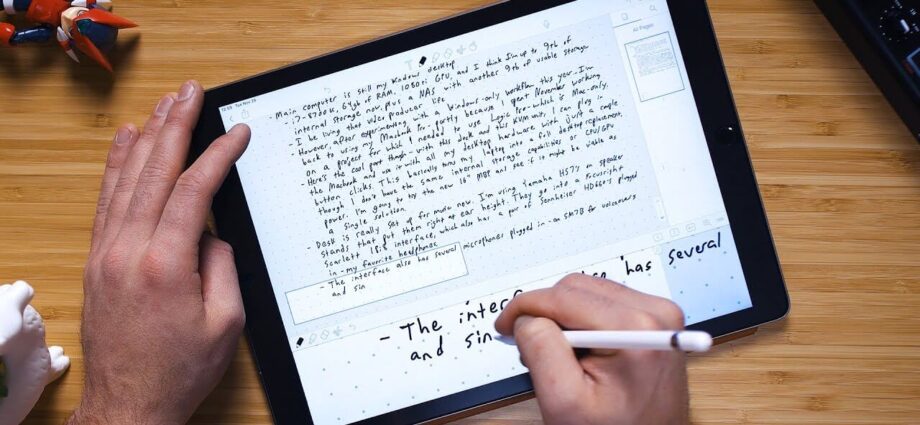 12:58 Tue Nov 26
All Pages
- Main computer is still my Windows desktop
- i7-8700k, 64gb of RAM, 1080ti GPU, and I think I'm up to 9tb of
internal storage now, plus a NAS with another 9tb of usable storage.
I be living that video producer life
- However, after experimenting with a Windows-only workflow this year, I'm
back to using my Macbook Pro, partly because I spent November working
on a project for which I needed to use Logic Pro - which is Mac-only.
- Here's the cool part though - with this dock and this KVM unit, I can plug in
the Macbook and use it with all my desktop hardware with just a couple
button clicks. This basically makes my laptop into a full desktop replacement,
though I don't have the same internal storage capabilities or CPU/GPU
power. I'm going to try the new 16" MBP and see if it might be viable as
a single solution.
- Desk is really set up for music now. I'm using Yamaha HS7's on speaker
stands that put them right at ear height. They go into a Focusright
Scarlett 18i8 interface, which also has a pair of Sennheiser HD660s plugged
in - my favorite headphones
- The interface also has several microphones plugged in - an SM7B for voiceovers
and sin
- The interf has several
and sin